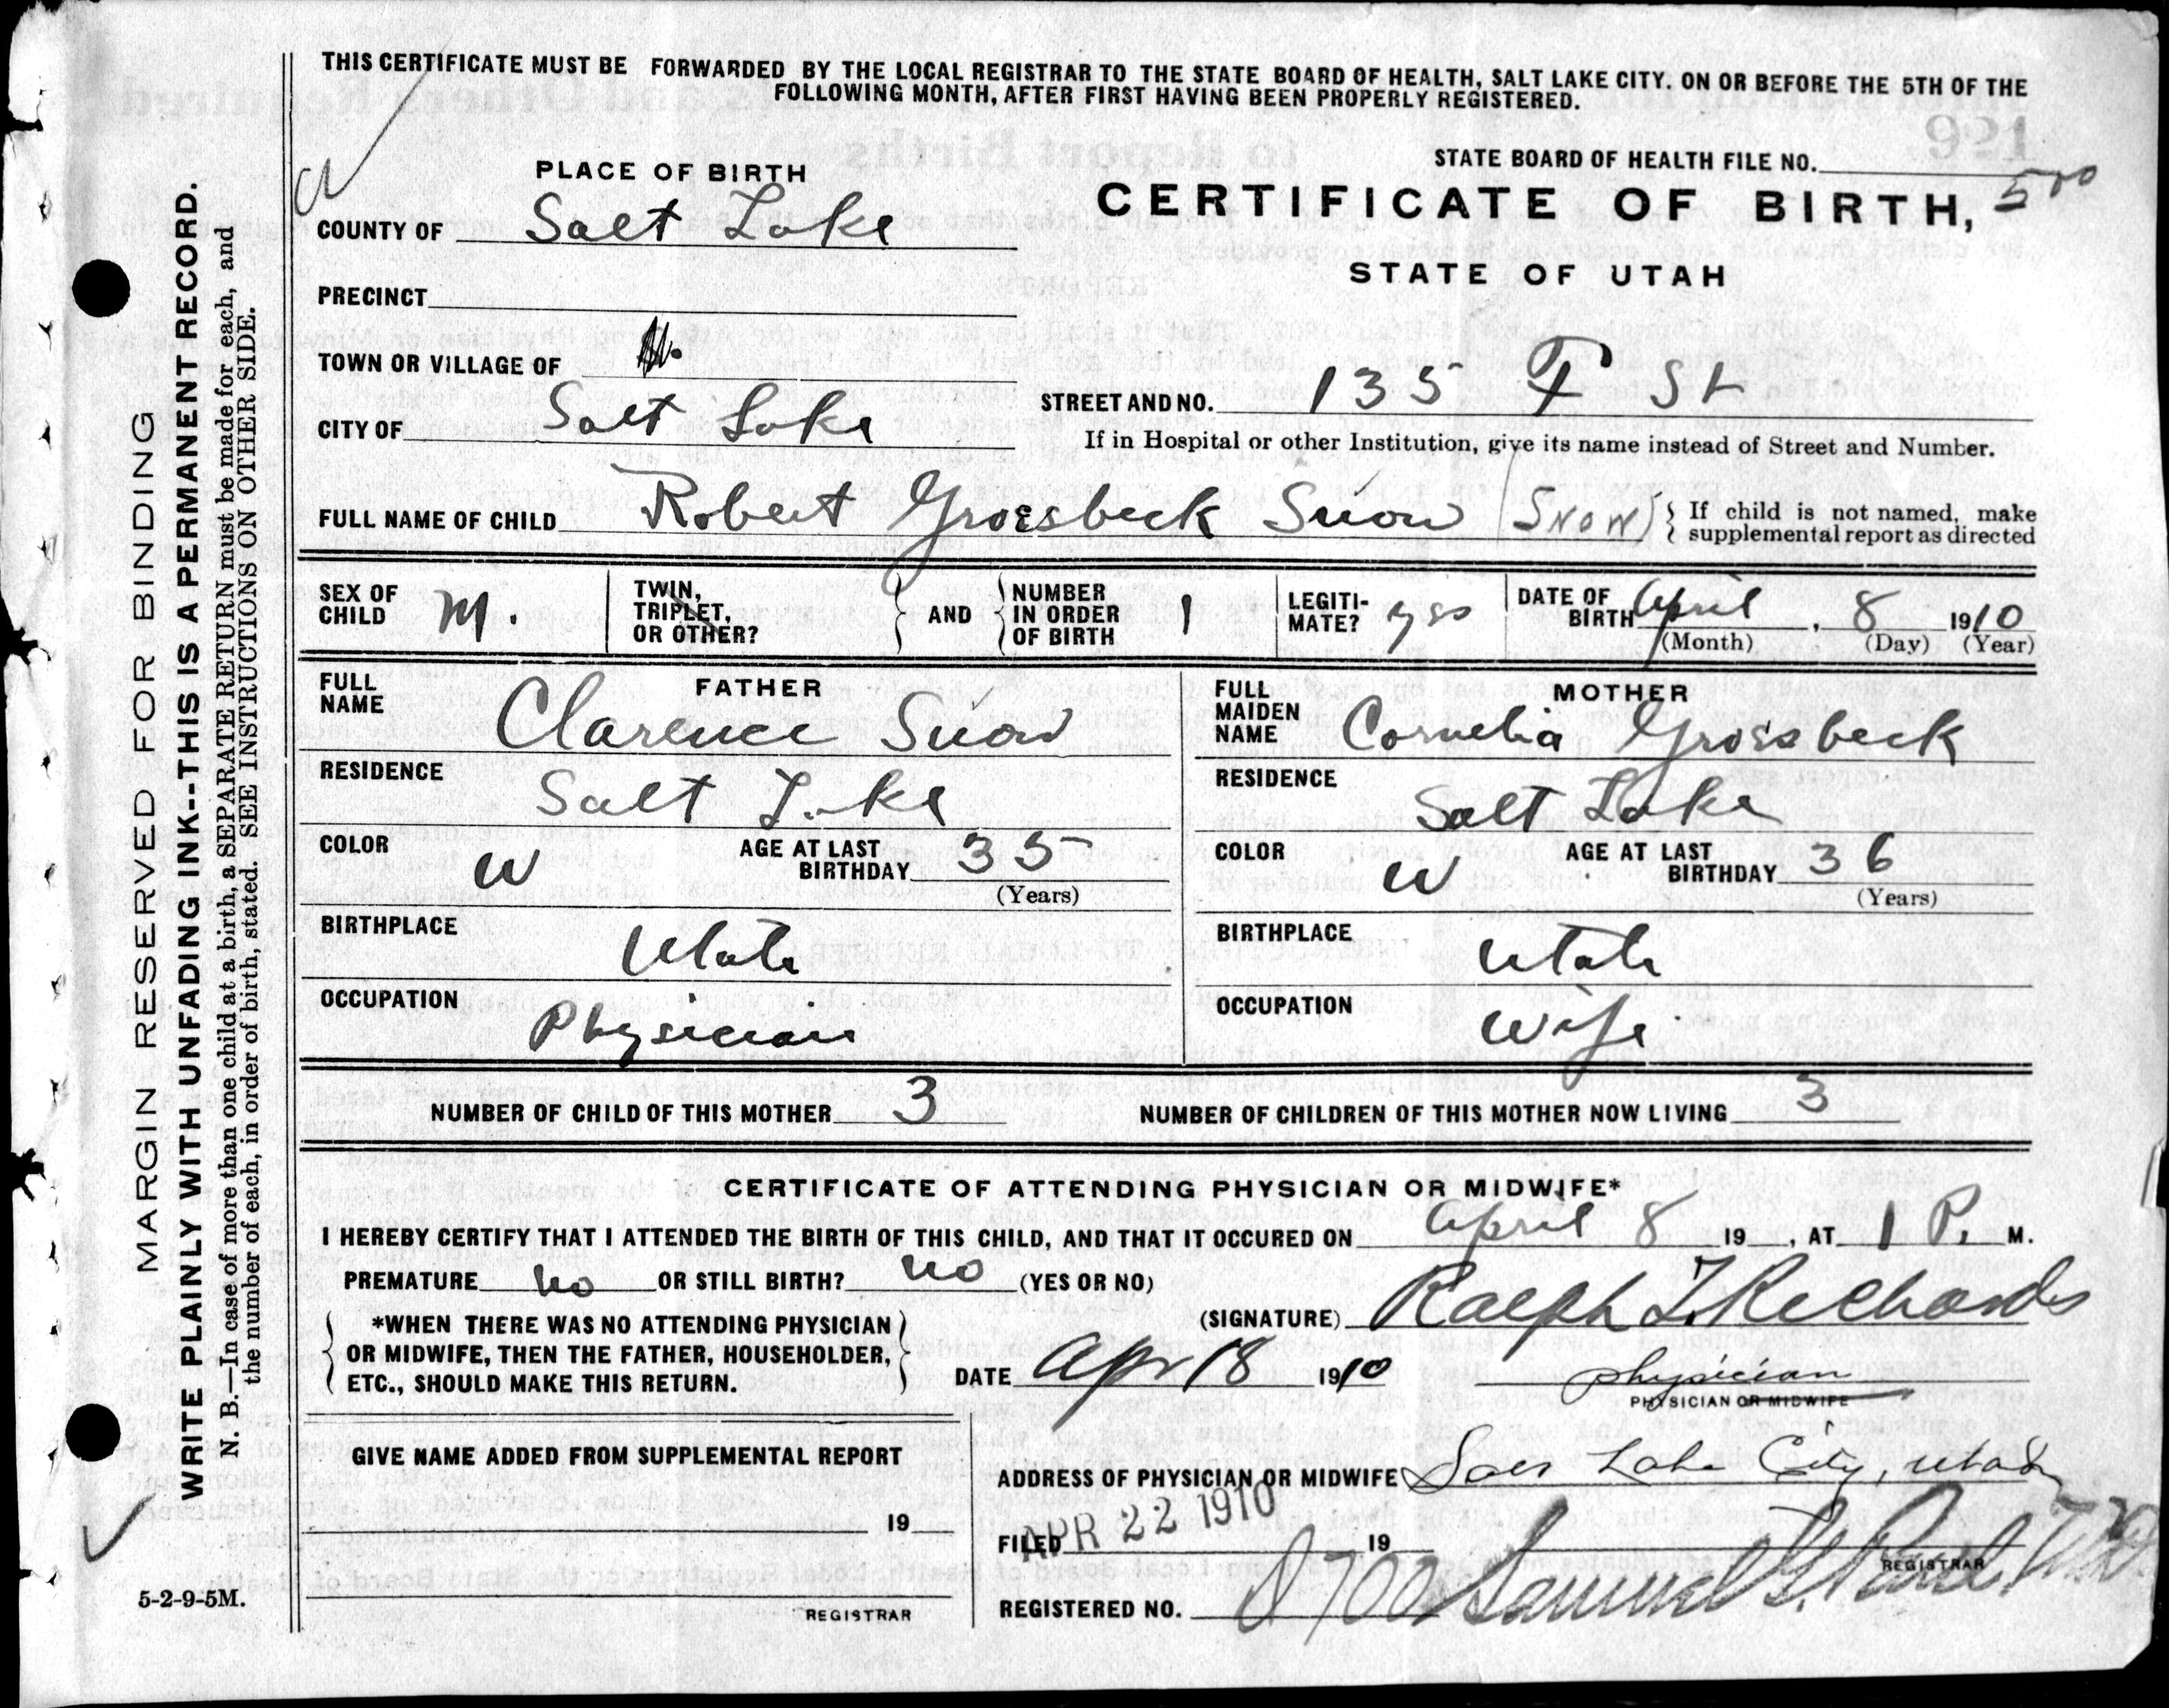 THIS CERTIFICATE MUST BE FORWARDED BY THE LOCAL REGISTRAR TO THE STATE BOARD OF HEALTH, SALT LAKE CITY. ON OR BEFORE THE 5TH OF THE
FOLLOWING MONTH, AFTER FIRST HAVING BEEN PROPERLY REGISTERED.
921
PLACE OF BIRTH
STATE BOARD OF HEALTH FILE NO.
CERTIFICATE OF BIRTH, 500
COUNTY OF Salt Lake
STATE OF UTAH
PRECINCT
TOWN OR VILLAGE OF
STREET AND NO. 135 F St
CITY OF Salt Lake
If in Hospital or other Institution, give its name instead of Street and Number.
FULL NAME OF CHILD Robert Groesbeck Snow (SNOW) If child is not named, make
supplemental report as directed
SEX OF CHILD M.
TWIN, TRIPLET, OR OTHER? AND NUMBER IN ORDER OF BIRTH 1
LEGITIMATE? yes
DATE OF BIRTH April, 8 1910
(Month) (Day) (Year)
FATHER
FULL NAME Clarence Snow
RESIDENCE Salt Lake
COLOR W AGE AT LAST BIRTHDAY 35
(Years)
BIRTHPLACE Utah
OCCUPATION Physician
MOTHER
FULL MAIDEN NAME Cornelia Groesbeck
RESIDENCE Salt Lake
COLOR W AGE AT LAST BIRTHDAY 36
(Years)
BIRTHPLACE Utah
OCCUPATION Wife
NUMBER OF CHILD OF THIS MOTHER 3 NUMBER OF CHILDREN OF THIS MOTHER NOW LIVING 3
CERTIFICATE OF ATTENDING PHYSICIAN OR MIDWIFE*
I HEREBY CERTIFY THAT I ATTENDED THE BIRTH OF THIS CHILD, AND THAT IT OCCURED ON April 8 19 , AT 1 P. M.
PREMATURE no OR STILL BIRTH? no (YES OR NO)
(SIGNATURE) Ralph T. Richards
*WHEN THERE WAS NO ATTENDING PHYSICIAN
OR MIDWIFE, THEN THE FATHER, HOUSEHOLDER,
ETC., SHOULD MAKE THIS RETURN.
DATE Apr 18 1910 physician
PHYSICIAN OR MIDWIFE
GIVE NAME ADDED FROM SUPPLEMENTAL REPORT
19
REGISTRAR
ADDRESS OF PHYSICIAN OR MIDWIFE Salt Lake City, Utah
FILED APR 22 1910 19
REGISTRAR
REGISTERED NO. Samuel G. Paul
MARGIN RESERVED FOR BINDING
WRITE PLAINLY WITH UNFADING INK--THIS IS A PERMANENT RECORD.
N. B.—In case of more than one child at a birth, a SEPARATE RETURN must be made for each, and
the number of each, in order of birth, stated. SEE INSTRUCTIONS ON OTHER SIDE.
5-2-9-5M.